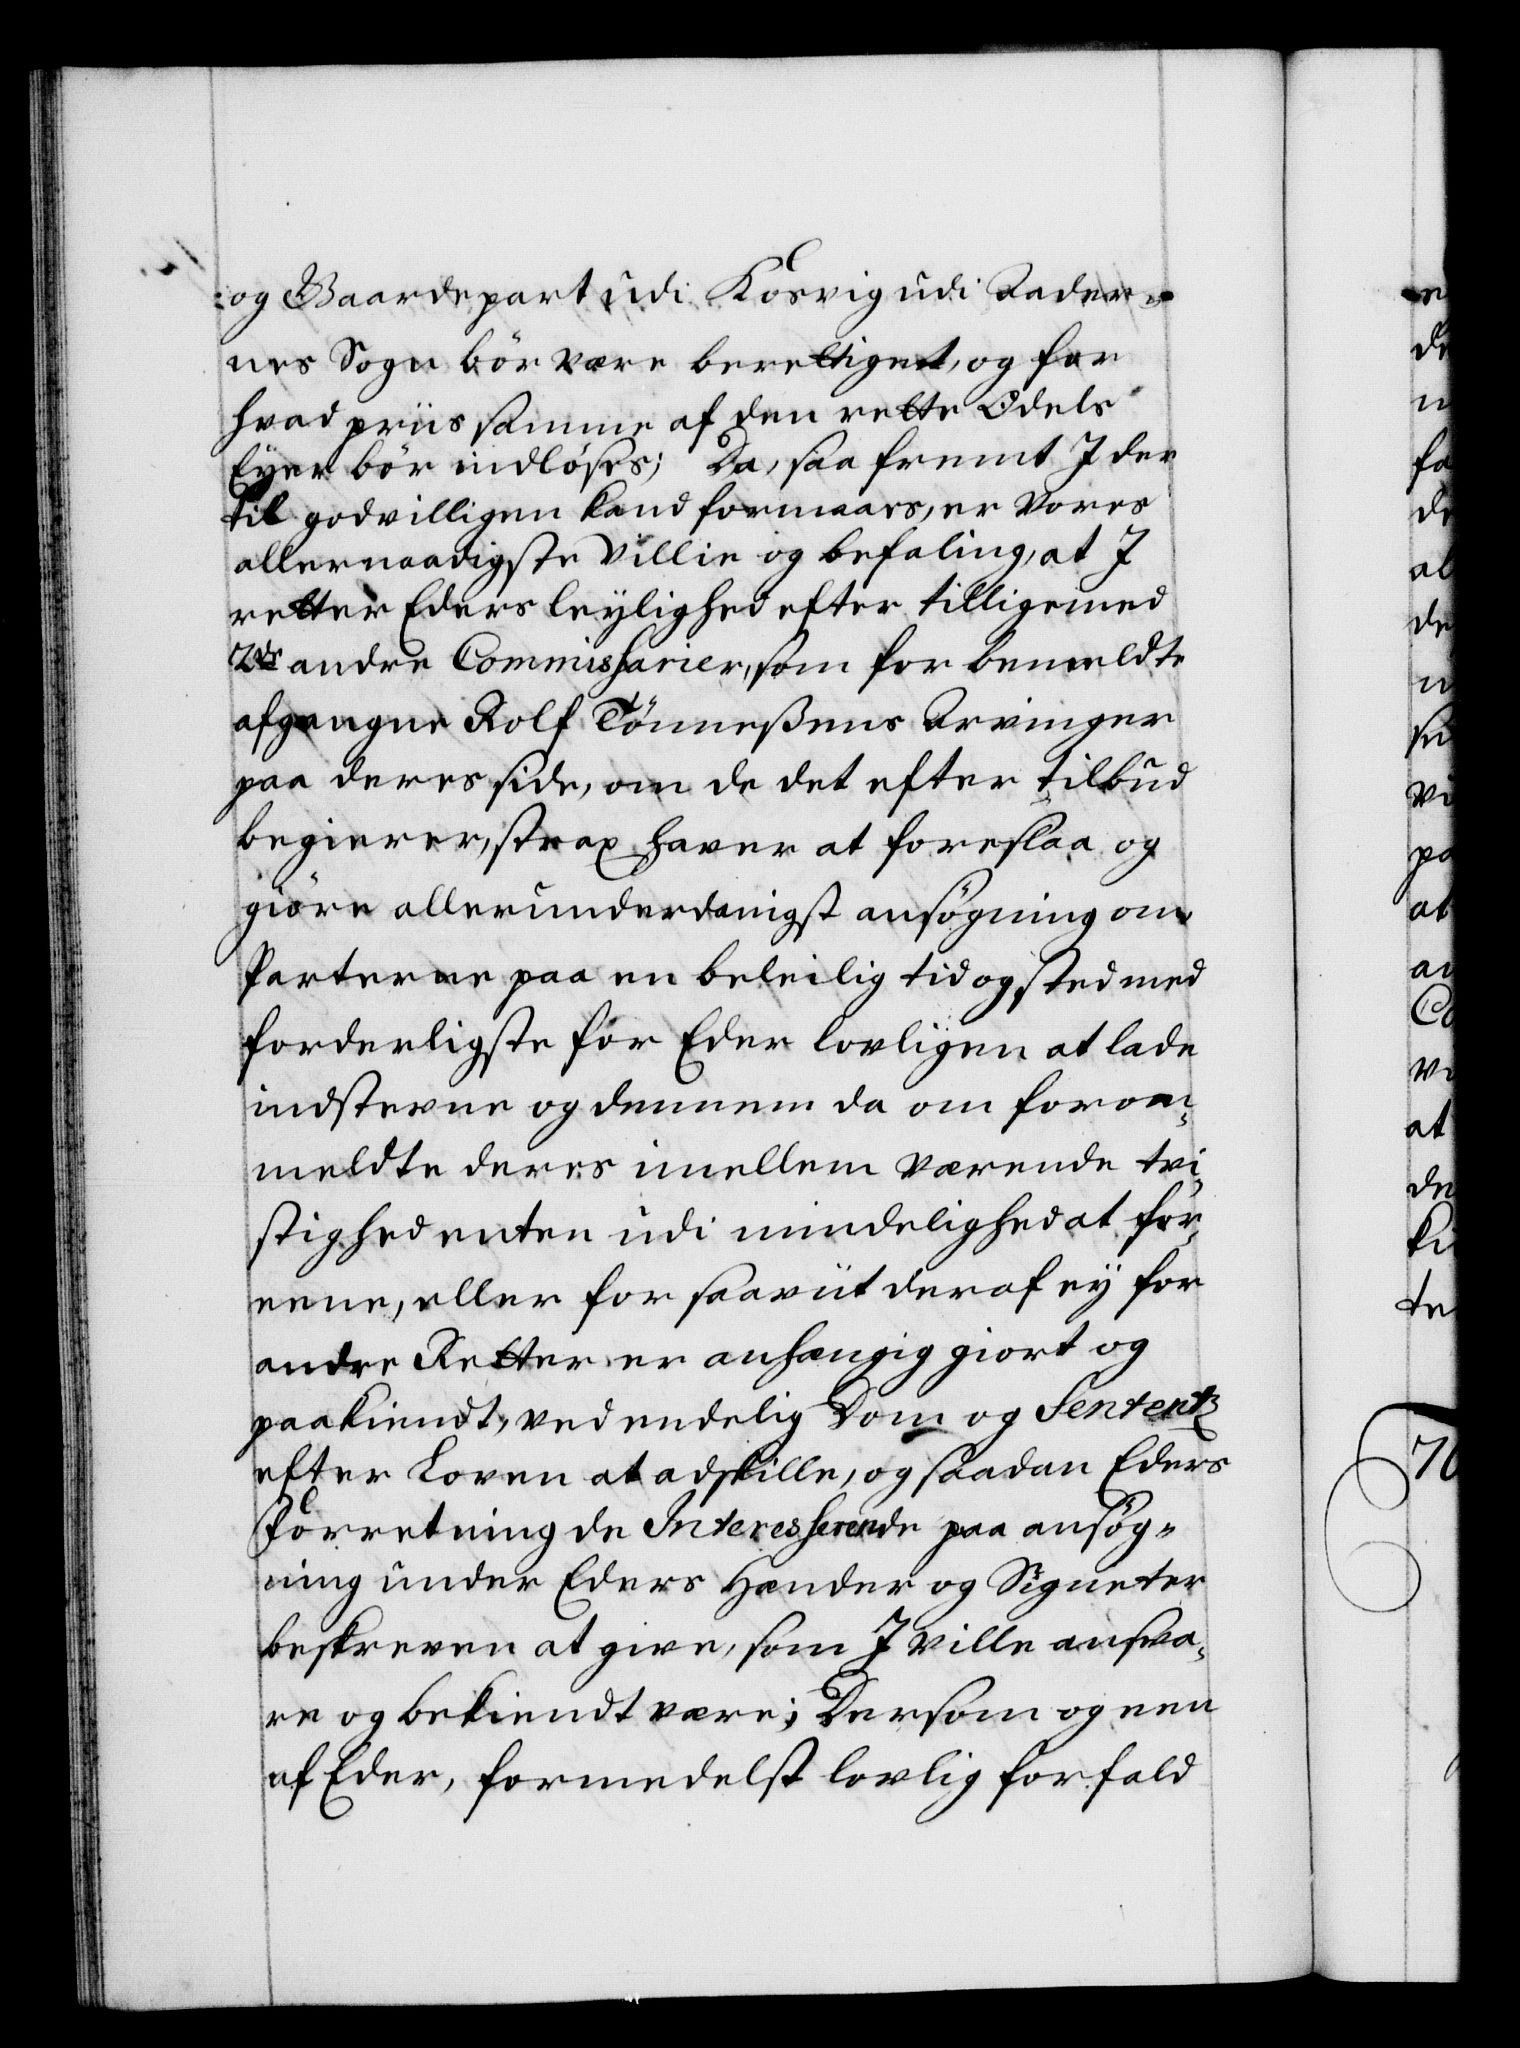 og Gaardepart udi Kosvig udi Aader=
nes Sogn bör være berettiget, og for
hvad priis samme af den rette Odels
Eyer bör indlöses; Da, saa fremt I der
til godvilligen kand formaaes, er vores
allernaadigste villie og befaling, at I
retter Eders leylighed efter tilligemed
2de andre Commissarier, som for bemeldte
afgangne Rolf Tönneßens Arvinger
paa deres side, om de det efter tilbud
begierer, strax haver at foreslaa og
giöre allerunderdanigst ansögning om
Parterne paa en beleilig tid og sted med
forderligste for Eder lovligen at lade
indstevne og dennem da om forom=
meldte deres imellem værende tvi=
stighed enten udi mindelighed at for=
eene, eller for saavit deraf ey for
andre Retter er anhængig giort og
paakiendt, ved endelig Dom og Sententz
efter Loven at adskille, og saadan Eders
Forretning de Interesserende paa ansög=
ning under Eders Hænder og Signeter
beskreven at give, som I ville ansva=
re og bekiendt være; Dersom og een
af Eder, formedelst lovlig forfald